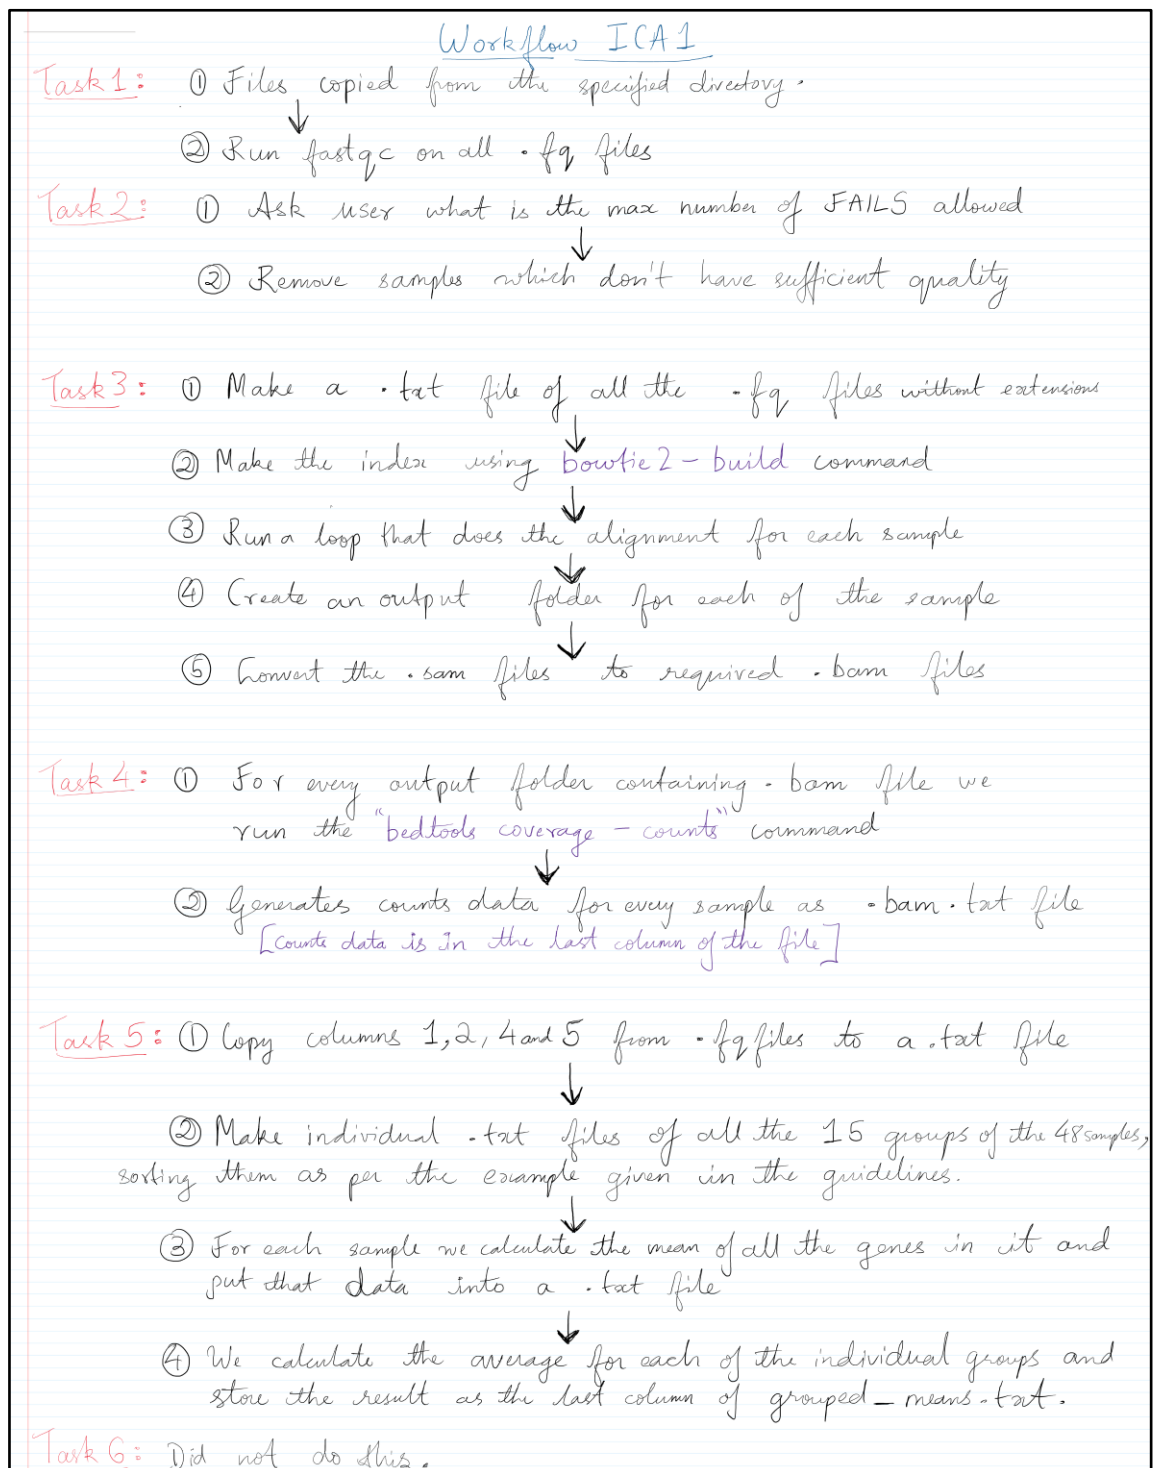 Workflow ICA1
Task1: ① Files copied from the specified directory.
② Run fastqc on all .fq files
Task2: ① Ask user what is the max number of FAILS allowed
② Remove samples which don't have sufficient quality
Task3: ① Make a .txt file of all the .fq files without extensions
② Make the index using bowtie2-build command
③ Run a loop that does the alignment for each sample
④ Create an output folder for each of the sample
⑤ Convert the .sam files to required .bam files
Task 4: ① For every output folder containing .bam file we
run the "bedtools coverage -counts" command
② Generates counts data for every sample as .bam.txt file
[Counts data is in the last column of the file]
Task 5: ① Copy columns 1,2,4 and 5 from .fq files to a .txt file
② Make individual .txt files of all the 15 groups of the 48 samples,
sorting them as per the example given in the guidelines.
③ For each sample we calculate the mean of all the genes in it and
put that data into a .txt file
④ We calculate the average for each of the individual groups and
store the result as the last column of grouped_means.txt.
Task 6: Did not do this.